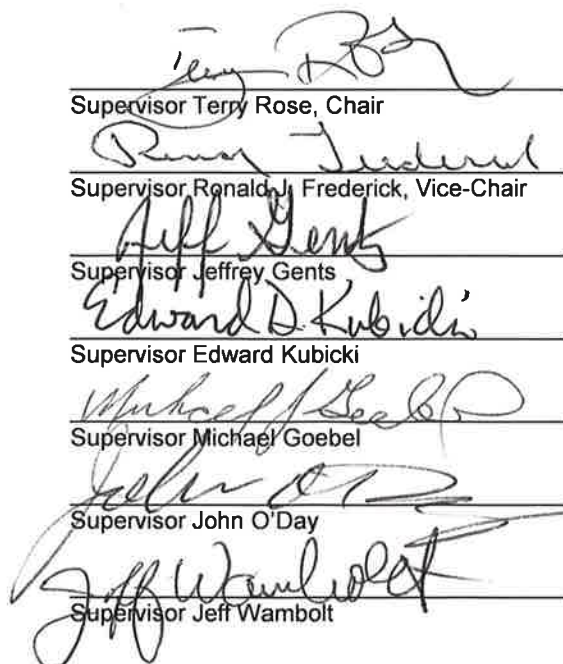 Terry Rose
Supervisor Terry Rose, Chair
Supervisor Ronald J. Frederick, Vice-Chair
Jeff Gentz
Supervisor Jeffrey Gents
Edward D. Kubicki
Supervisor Edward Kubicki
Michael J Goebel
Supervisor Michael Goebel
John O'D
Supervisor John O'Day
Jeff Wambolt
Supervisor Jeff Wambolt